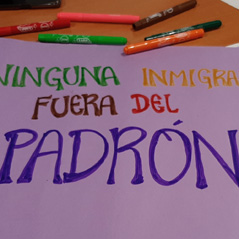 NINGUNA INMIGRA
FUERA DEL
PADRÓN